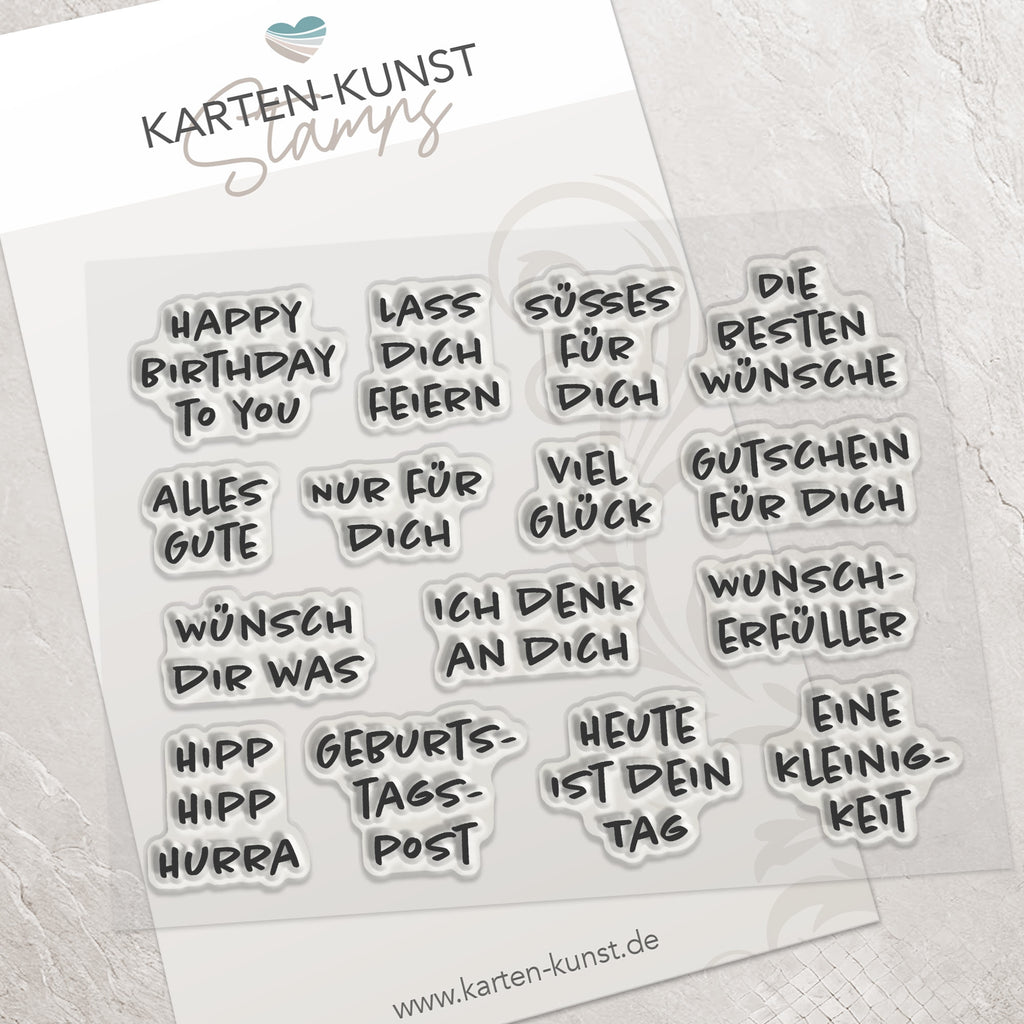 KARTEN-KUNST
Stamps
HAPPY
BIRTHDAY
TO YOU
LASS
DICH
FEIERN
SÜSSES
FÜR
DICH
DIE
BESTEN
WÜNSCHE
ALLES
GUTE
NUR FÜR
DICH
VIEL
GLÜCK
GUTSCHEIN
FÜR DICH
WÜNSCH
DIR WAS
ICH DENK
AN DICH
WUNSCH-
ERFÜLLER
HIPP
HIPP
HURRA
GEBURTS-
TAGS-
POST
HEUTE
IST DEIN
TAG
EINE
KLEINIG-
KEIT
www.karten-kunst.de